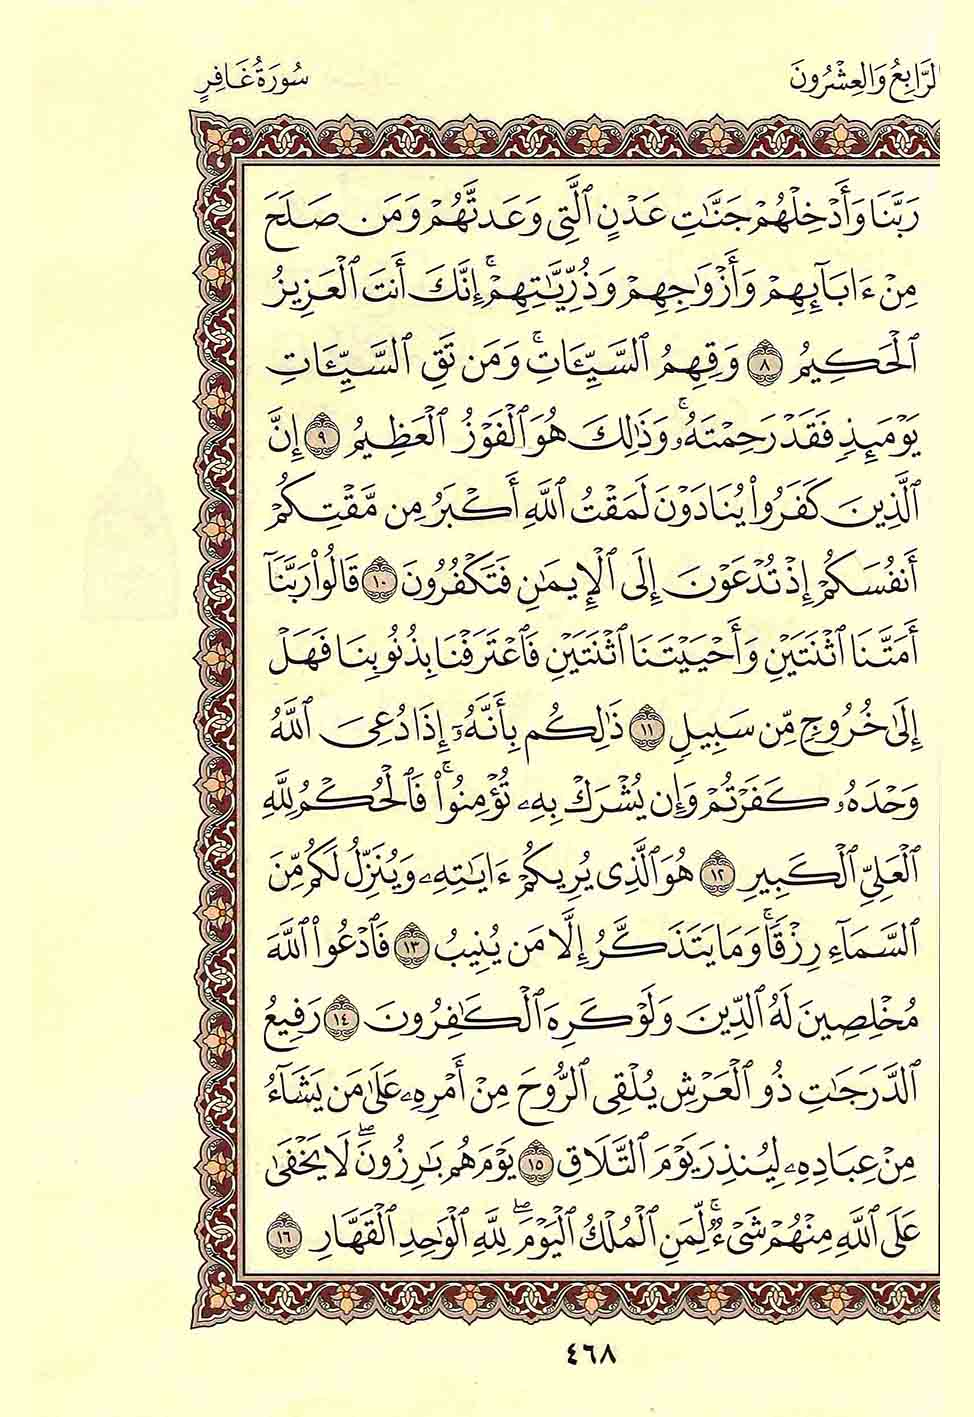 الرَّابِعُ وَالعِشْرُونَ
سُورَةُ غَافِرٍ
رَبَّنَا وَأَدْخِلْهُمْ جَنَّٰتِ عَدْنٍ ٱلَّتِى وَعَدتَّهُمْ وَمَن صَلَحَ
مِنْ ءَابَآئِهِمْ وَأَزْوَٰجِهِمْ وَذُرِّيَّٰتِهِمْۚ إِنَّكَ أَنتَ ٱلْعَزِيزُ
ٱلْحَكِيمُ ٨ وَقِهِمُ ٱلسَّيِّـَٔاتِۚ وَمَن تَقِ ٱلسَّيِّـَٔاتِ
يَوْمَئِذٍ فَقَدْ رَحِمْتَهُۥۚ وَذَٰلِكَ هُوَ ٱلْفَوْزُ ٱلْعَظِيمُ ٩ إِنَّ
ٱلَّذِينَ كَفَرُوا۟ يُنَادَوْنَ لَمَقْتُ ٱللَّهِ أَكْبَرُ مِن مَّقْتِكُمْ
أَنفُسَكُمْ إِذْ تُدْعَوْنَ إِلَى ٱلْإِيمَٰنِ فَتَكْفُرُونَ ١٠ قَالُوا۟ رَبَّنَآ
أَمَتَّنَا ٱثْنَتَيْنِ وَأَحْيَيْتَنَا ٱثْنَتَيْنِ فَٱعْتَرَفْنَا بِذُنُوبِنَا فَهَلْ
إِلَىٰ خُرُوجٍ مِّن سَبِيلٍ ١١ ذَٰلِكُم بِأَنَّهُۥٓ إِذَا دُعِىَ ٱللَّهُ
وَحْدَهُۥ كَفَرْتُمْ وَإِن يُشْرَكْ بِهِۦ تُؤْمِنُوا۟ۚ فَٱلْحُكْمُ لِلَّهِ
ٱلْعَلِىِّ ٱلْكَبِيرِ ١٢ هُوَ ٱلَّذِى يُرِيكُمْ ءَايَٰتِهِۦ وَيُنَزِّلُ لَكُم مِّنَ
ٱلسَّمَآءِ رِزْقًاۚ وَمَا يَتَذَكَّرُ إِلَّا مَن يُنِيبُ ١٣ فَٱدْعُوا۟ ٱللَّهَ
مُخْلِصِينَ لَهُ ٱلدِّينَ وَلَوْ كَرِهَ ٱلْكَٰفِرُونَ ١٤ رَفِيعُ
ٱلدَّرَجَٰتِ ذُو ٱلْعَرْشِ يُلْقِى ٱلرُّوحَ مِنْ أَمْرِهِۦ عَلَىٰ مَن يَشَآءُ
مِنْ عِبَادِهِۦ لِيُنذِرَ يَوْمَ ٱلتَّلَاقِ ١٥ يَوْمَ هُم بَٰرِزُونَۖ لَا يَخْفَىٰ
عَلَى ٱللَّهِ مِنْهُمْ شَىْءٌۚ لِّمَنِ ٱلْمُلْكُ ٱلْيَوْمَۖ لِلَّهِ ٱلْوَٰحِدِ ٱلْقَهَّارِ ١٦
٤٦٨